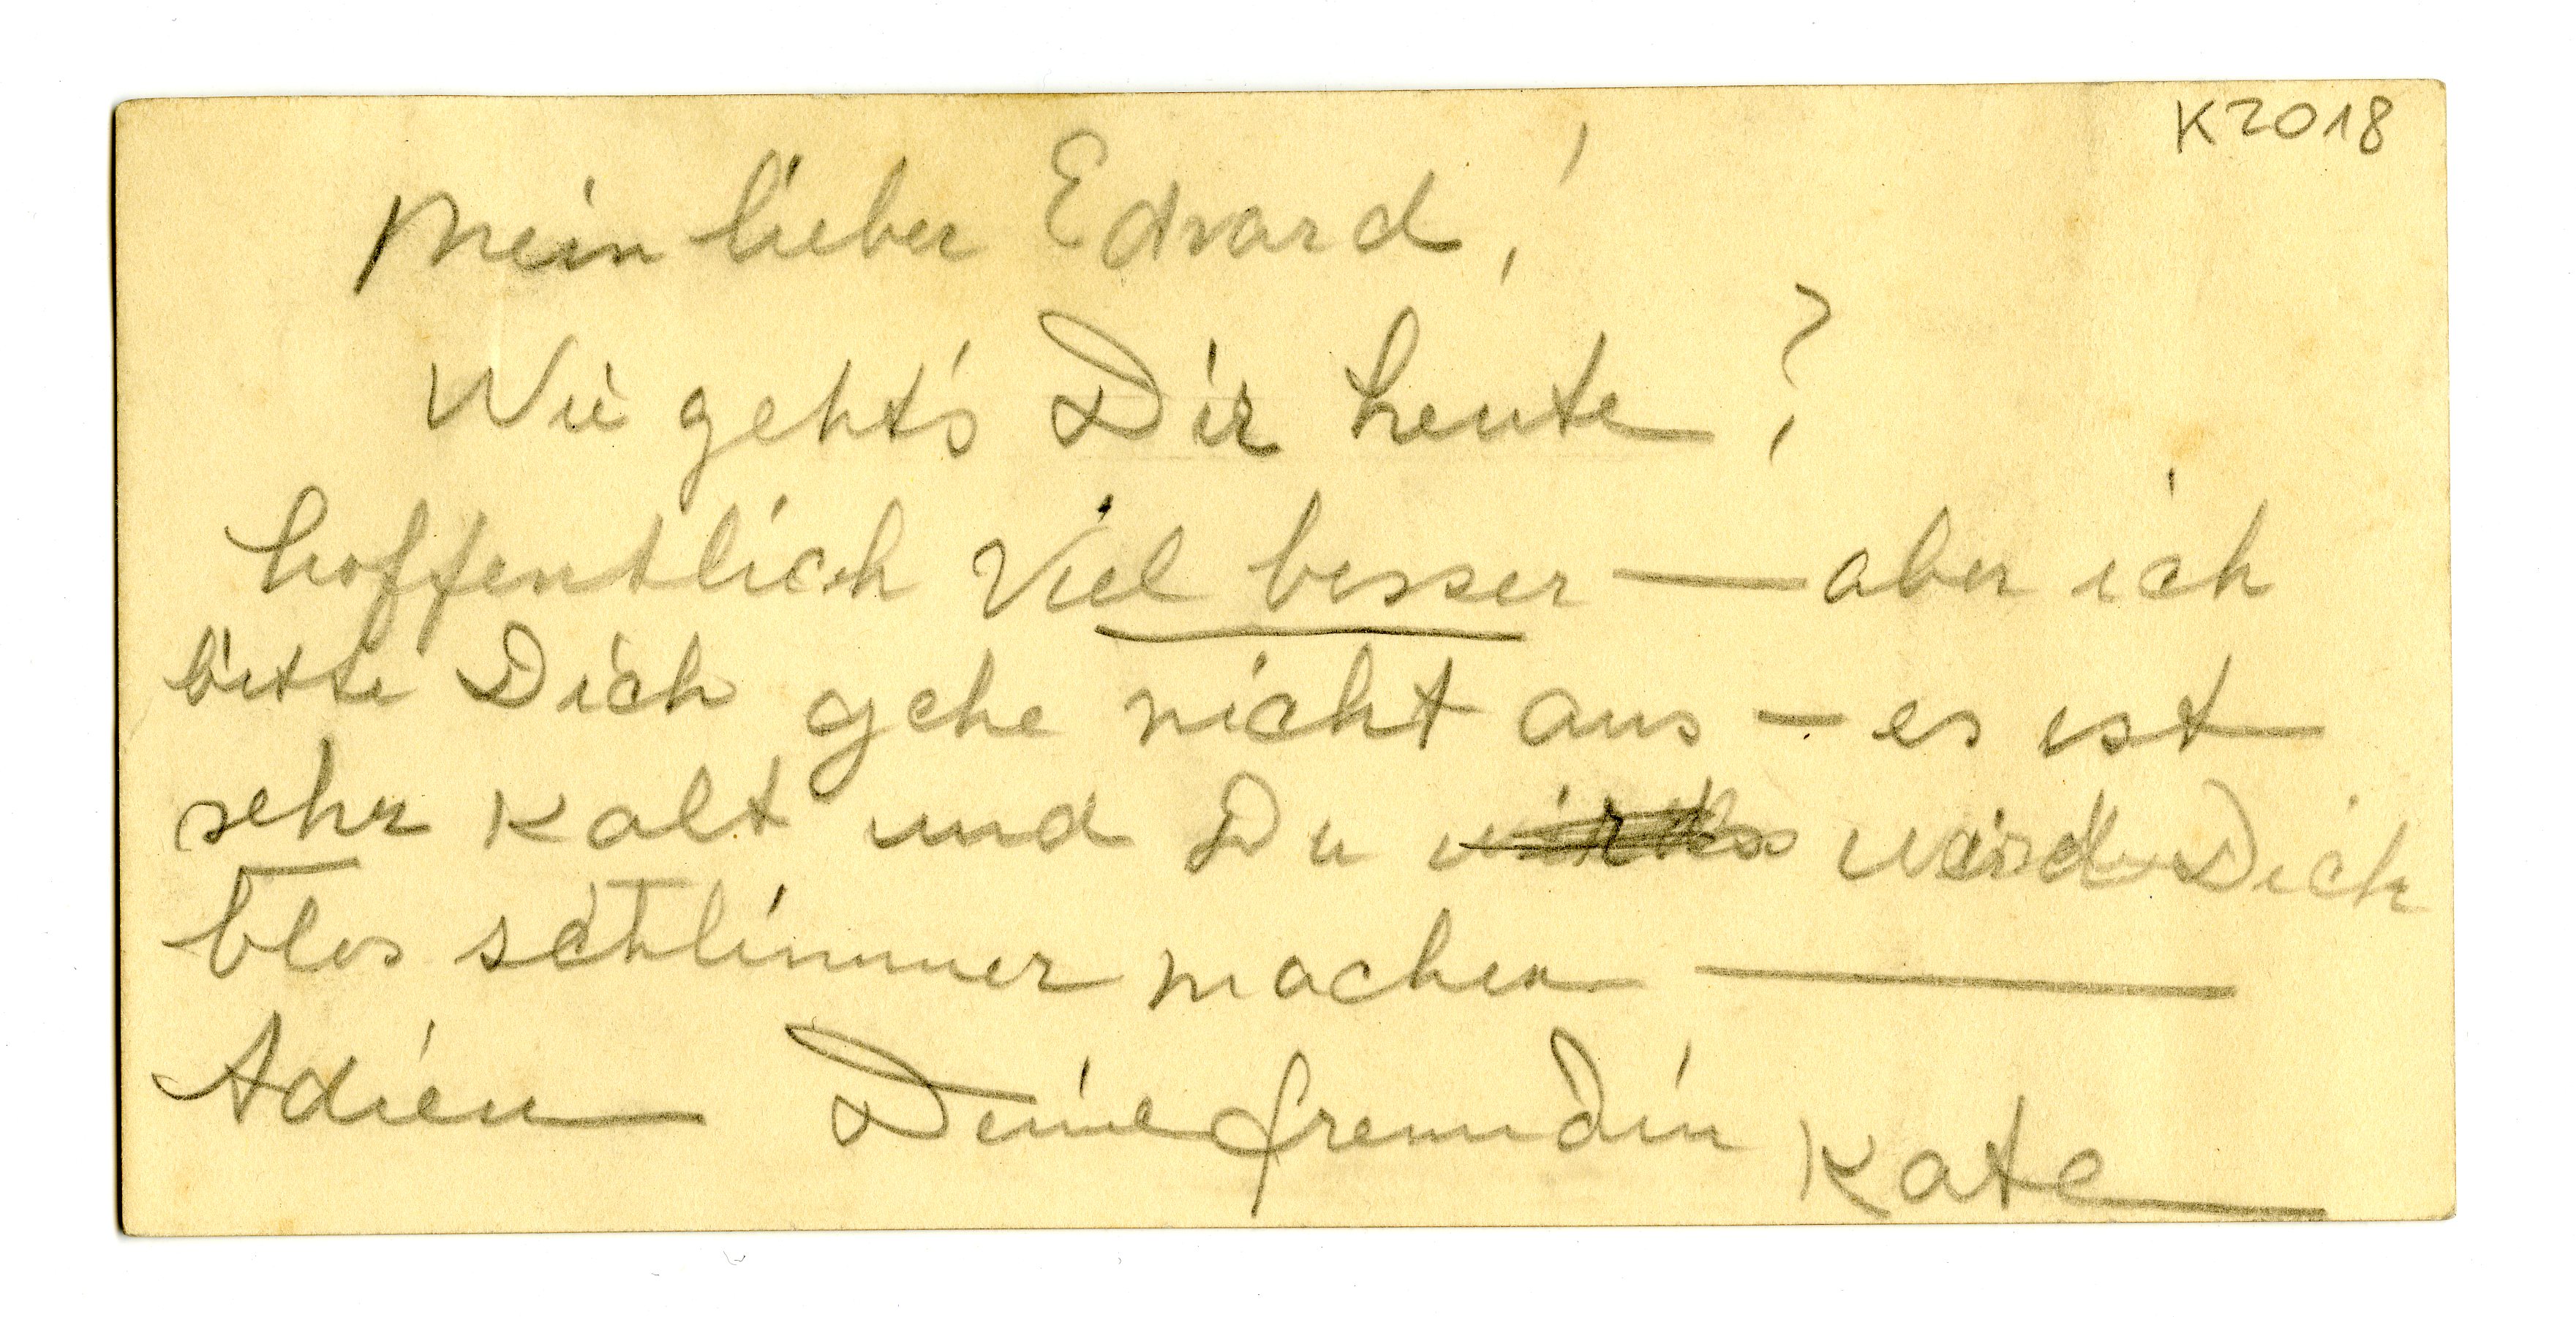 K2018
Mein lieber Edvard!
Wie geht's Dir heute?
hoffentlich Viel besser — aber ich
bitte Dich gehe nicht aus — es ist
sehr kalt und Du Dich
blos schlimmer machen —
Adieu Deine freundin Kate